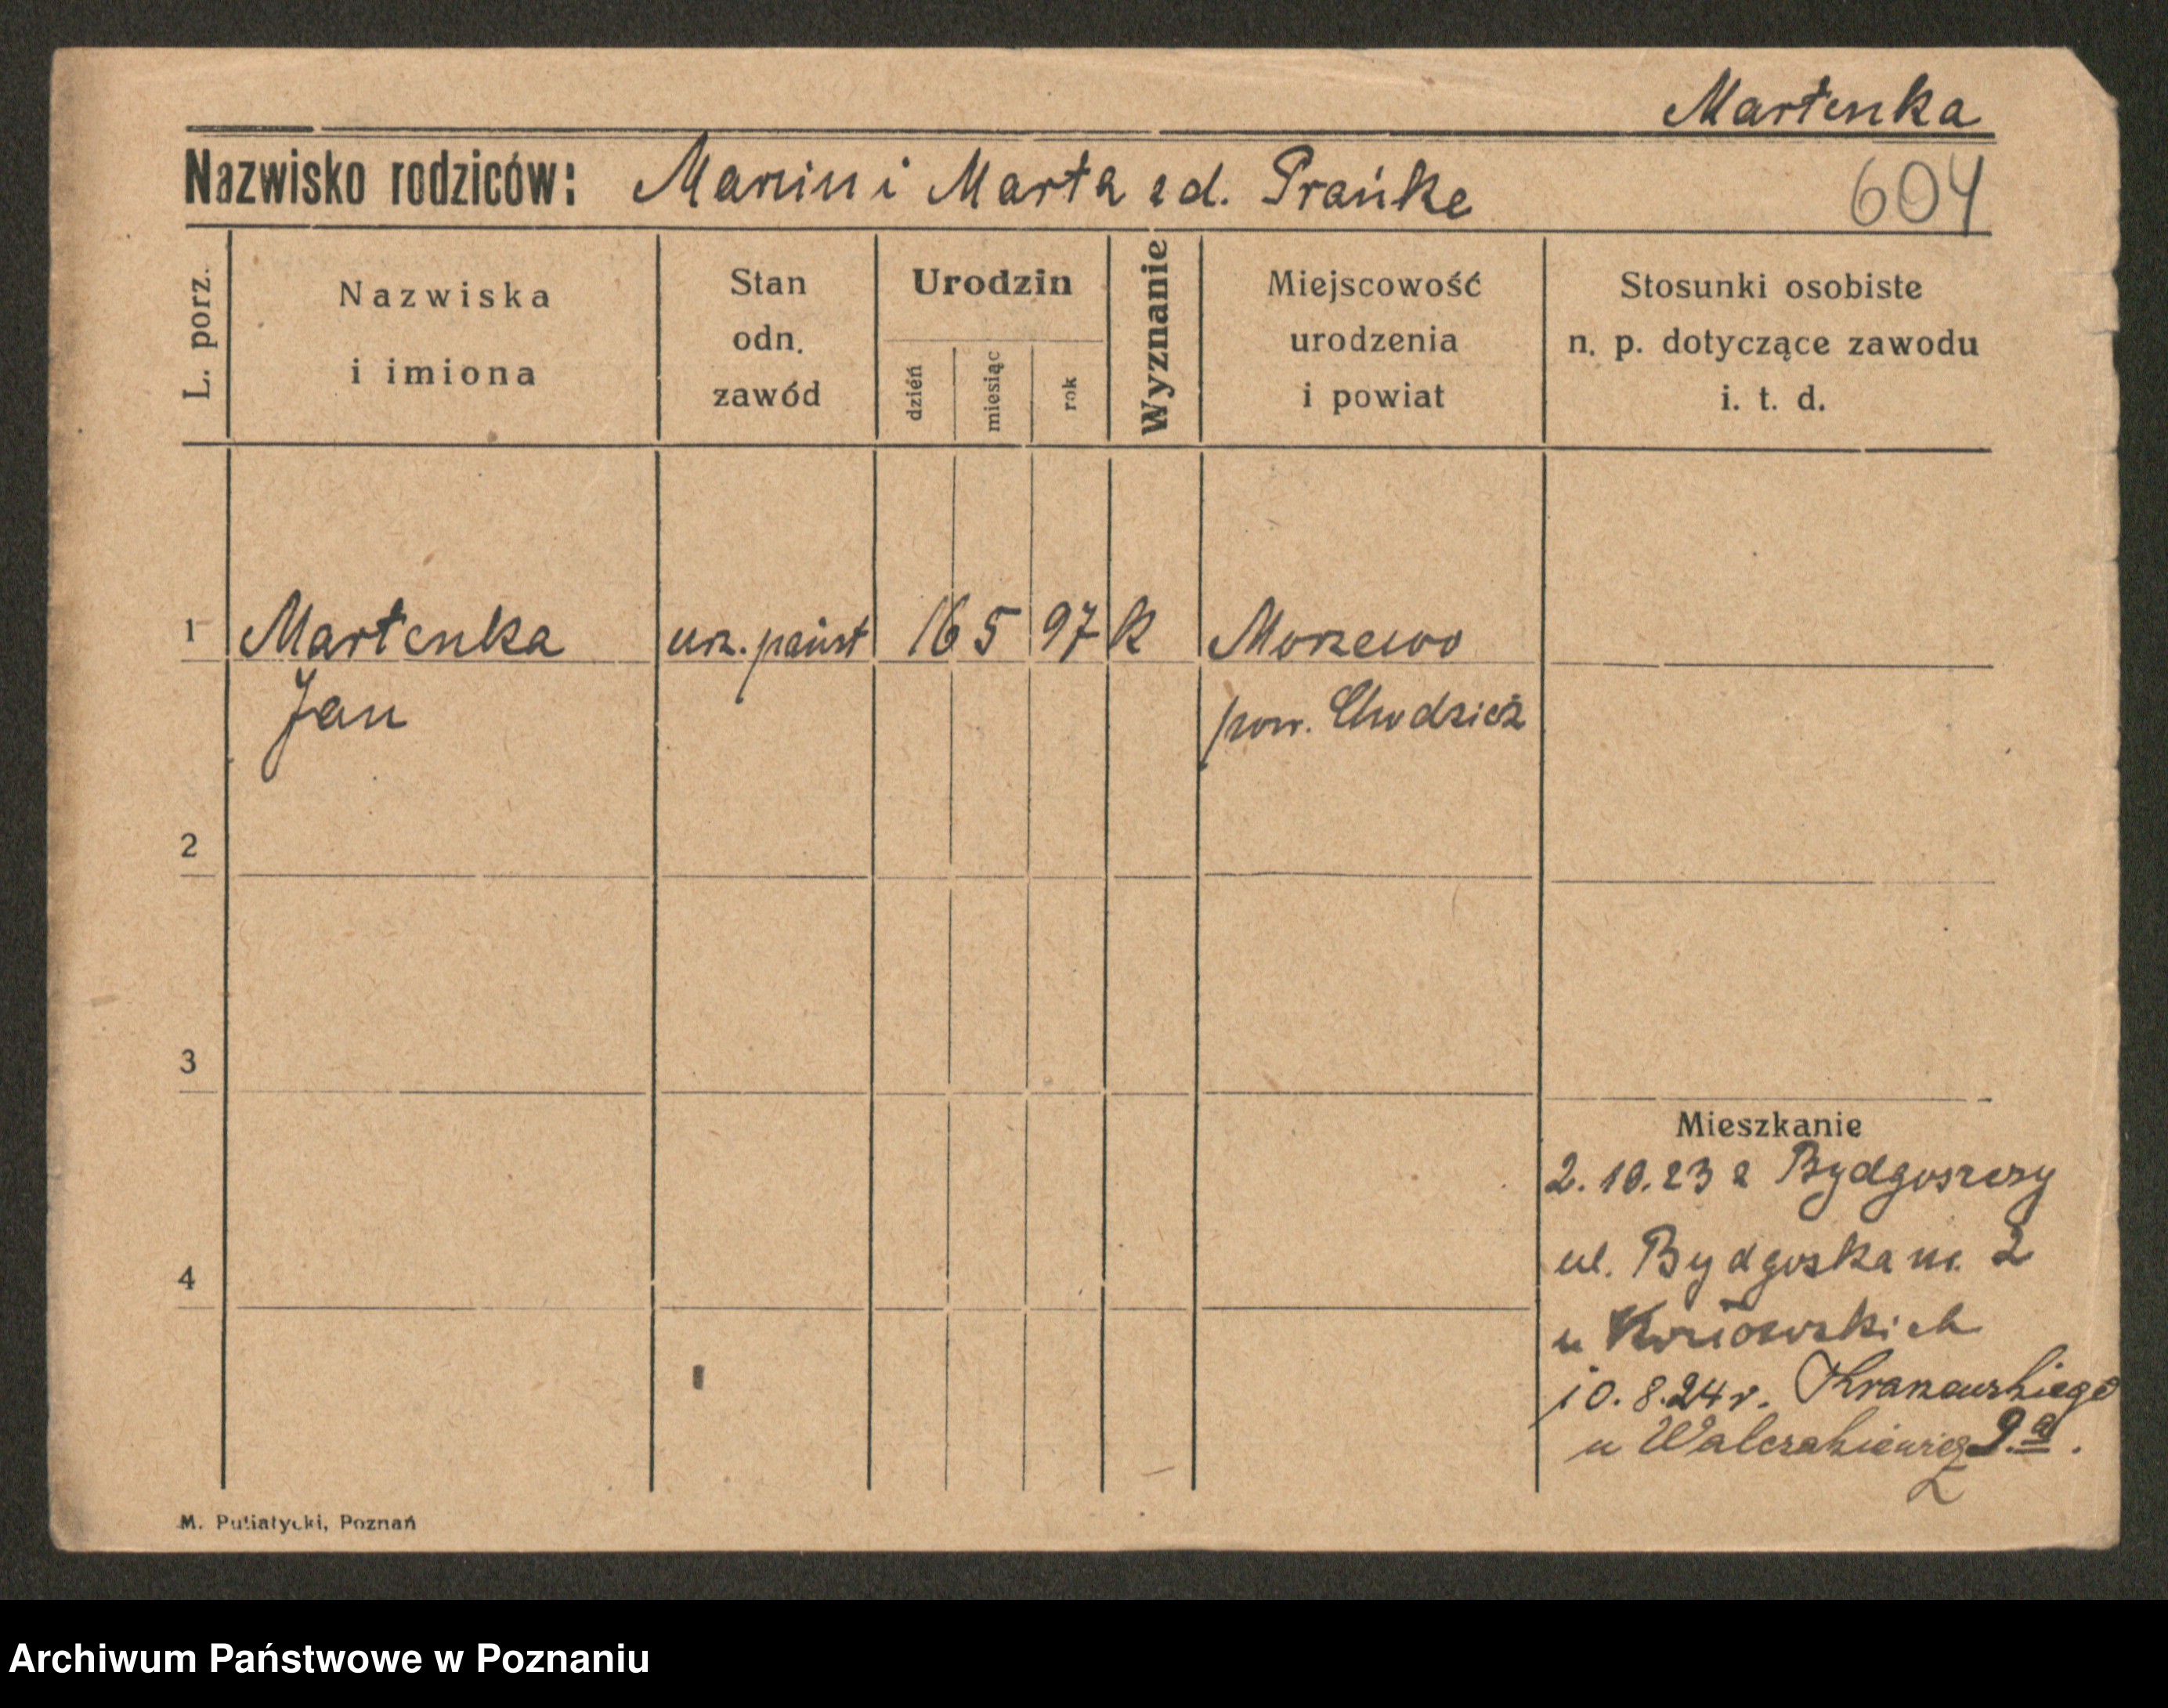 Martenka
Nazwisko rodziców: Marcin i Marta zd. Prańke
604
L. porz.
Nazwiska
i imiona
Stan
odn.
zawód
Urodzin
dzień
miesiąc
rok
Wyznanie
Miejscowość
urodzenia
i powiat
Stosunki osobiste
n. p. dotyczące zawodu
i. t. d.
1 Martenka urz. państ 16 5 97 K Morzewo
Jan pow. Chodzież
2
3
4
Mieszkanie
2.10.23 z Bydgoszczy
ul. Bydgoska nr. 2
u
10.8.24 r.
u 9.a.
M. Putiatycki, Poznań
Archiwum Państwowe w Poznaniu